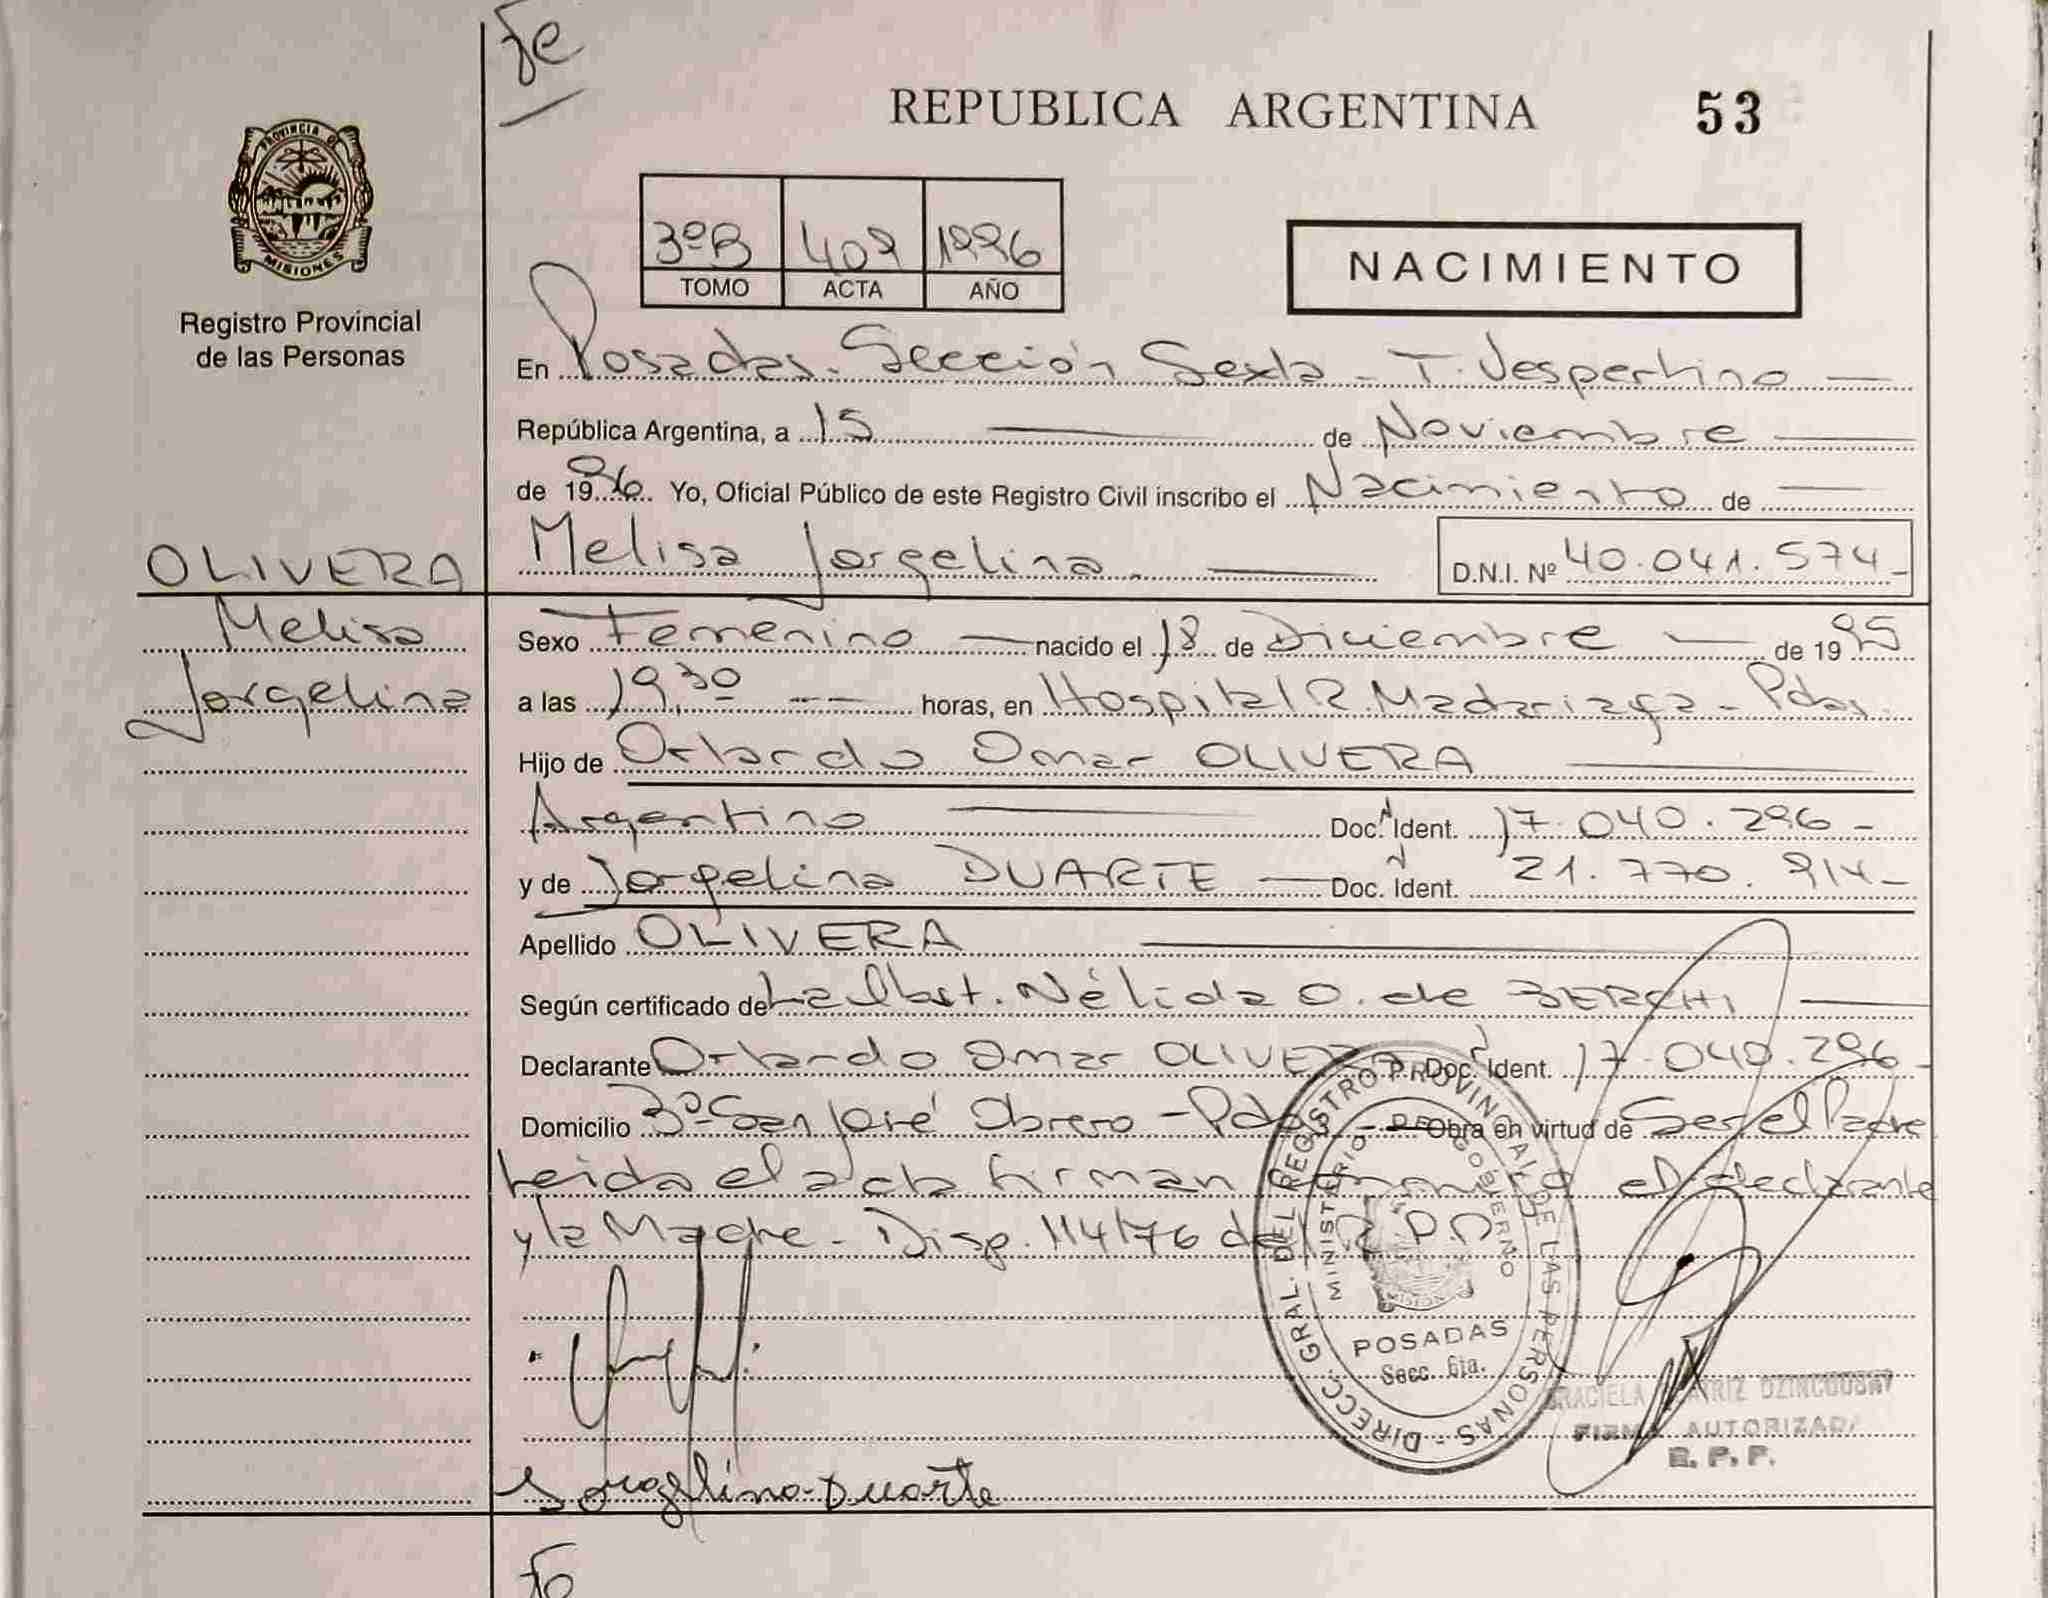 Fe
REPUBLICA ARGENTINA 53
PROVINCIA DE MISIONES
3ºB 409 1996
TOMO ACTA AÑO
NACIMIENTO
Registro Provincial
de las Personas
En Posadas. Sección Sexta - T. Vespertino
República Argentina, a 15 de Noviembre
de 1996 Yo, Oficial Público de este Registro Civil inscribo el Nacimiento de
Melisa Jorgelina. D.N.I. Nº 40.041.574-
OLIVERA
Melisa
Jorgelina
Sexo Femenino nacido el 18 de Diciembre de 1995
a las 19,30 horas, en Hospital R. Madariaga - Pdas.
Hijo de Orlando Omar OLIVERA
Argentino Doc. Ident. 17.040.296-
y de Jorgelina DUARTE Doc. Ident. 21.770.914-
Apellido OLIVERA
Según certificado de La Obst. Nélida O. de
Declarante Orlando Omar OLIVERA Doc. Ident. 17.040.296-
Domicilio San José Obrero - Pdas - Obra en virtud de Ser el Padre
Leida el acta firman conmigo el declarante
y la Madre - Disp. 114/76 del R.P.P.
DIRECC. GRAL. DEL REGISTRO PROVINCIAL DE LAS PERSONAS -
MINISTERIO DE GOBIERNO
POSADAS
Secc. 6ta.
GRACIELA
FIRMA AUTORIZADA
R. P. P.
Jorgelina Duarte
Fe